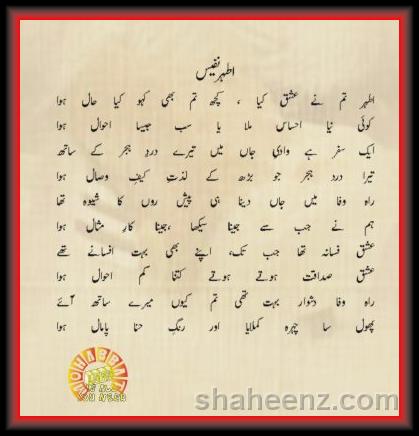 اطہر نفیس
اطہر تم نے عشق کیا ، کچھ تم بھی کہو کیا حال ہوا
کوئی نیا احساس ملا یا سب جیسا احوال ہوا
ایک سفر ہے وادیِ جاں میں تیرے دردِ ہجر کے ساتھ
تیرا درد ہجر جو بڑھ کے لذتِ کیفِ وصال ہوا
راہ وفا میں جاں دینا ہی پیش روں کا شیوہ تھا
ہم نے جب سے جینا سیکھا ،جینا کارِ مثال ہوا
عشق فسانہ تھا جب تک، اپنے بھی بہت افسانے تھے
عشق صداقت ہوتے ہوتے کتنا کم احوال ہوا
راہ وفا دشوار بہت تھی تم کیوں میرے ساتھ آئے
پھول سا چہرہ کملایا اور رنگِ حنا پامال ہوا
MOHABBAT
IS ALL
YOU NEED
shaheenz.com